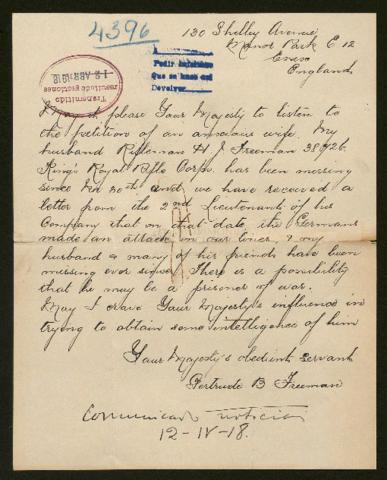 4396
130 Shelley Avenue
Manor Park E 12
Essex
England
Pedir
Que se haga así
Devolver
12 ABR 1918
Transmitida
May it please Your Majesty to listen to
the petition of an anxious wife. My
husband Rifleman H J Freeman
King's Royal Rifle Corps. has been missing
since and we have received a
letter from the 2nd Lieutenant of his
Company that on that date the Germans
made an attack on our lines, & my
husband & many of his friends have been
missing ever since. There is a possibility
that he may be a prisoner of war.
May I crave Your Majesty's influence in
trying to obtain some intelligence of him
Your Majesty's obedient servant
Gertrude B Freeman
noticias
12-IV-18.